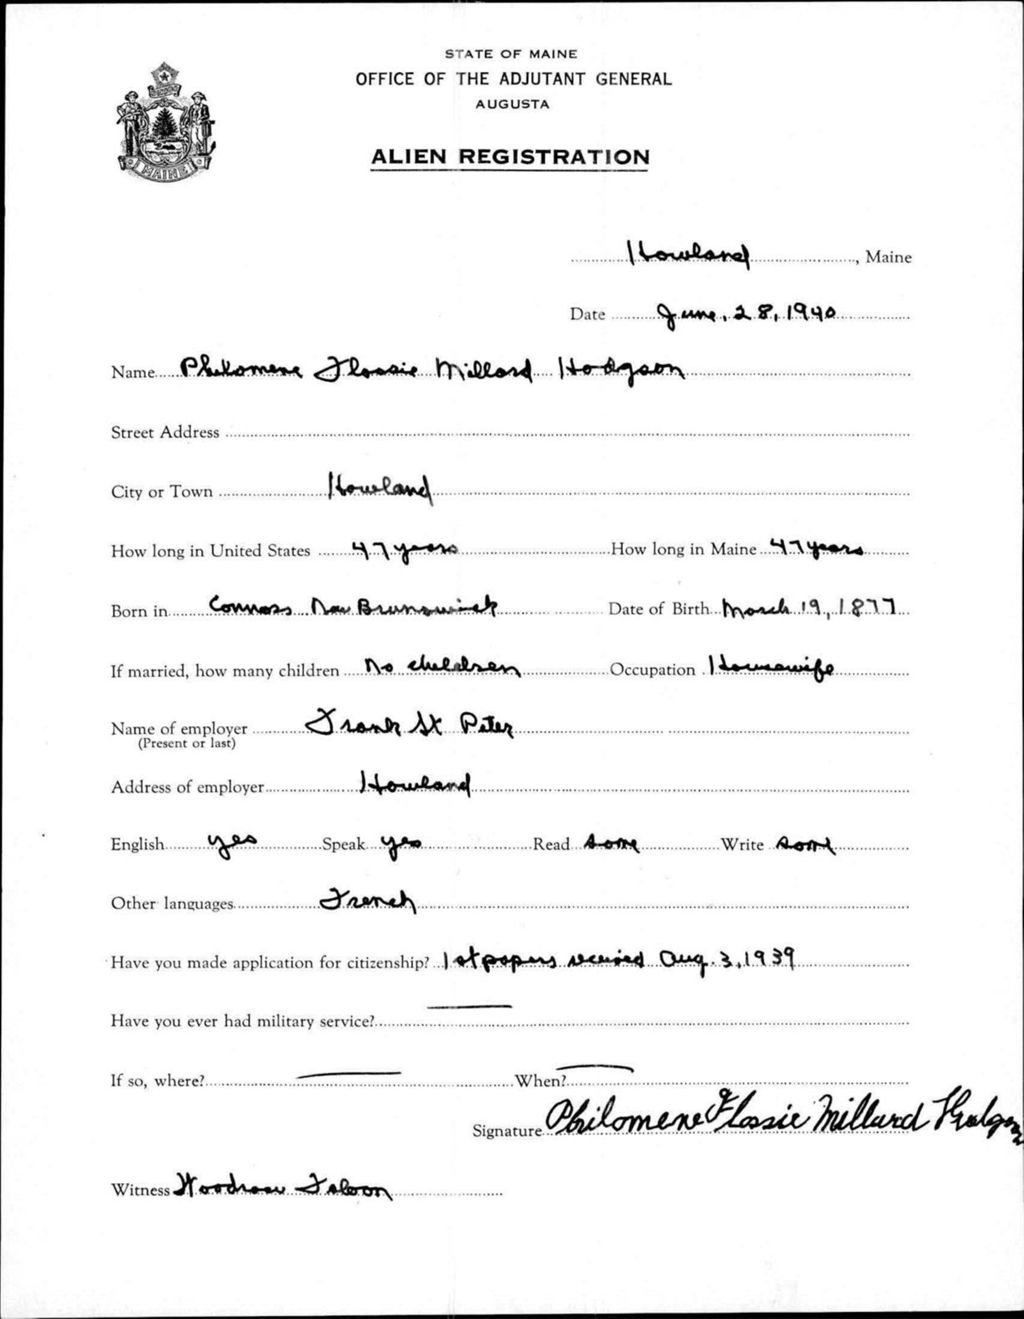 STATE OF MAINE
OFFICE OF THE ADJUTANT GENERAL
AUGUSTA
ALIEN REGISTRATION
MAINE
Howland, Maine
Date June, 28, 1940
Name Philomene Flossie Millard Hodgson
Street Address
City or Town Howland
How long in United States 47 years How long in Maine 47 years
Born in Connors New Brunswick Date of Birth March 19, 1877
If married, how many children No children Occupation Housewife
Name of employer Frank St Peter
(Present or last)
Address of employer Howland
English yes Speak yes Read some Write some
Other languages French
Have you made application for citizenship? 1st papers received Aug. 3, 1939
Have you ever had military service? —
If so, where? — When? —
Signature Philomene Flossie Millard Hodgson
Witness Woodrow